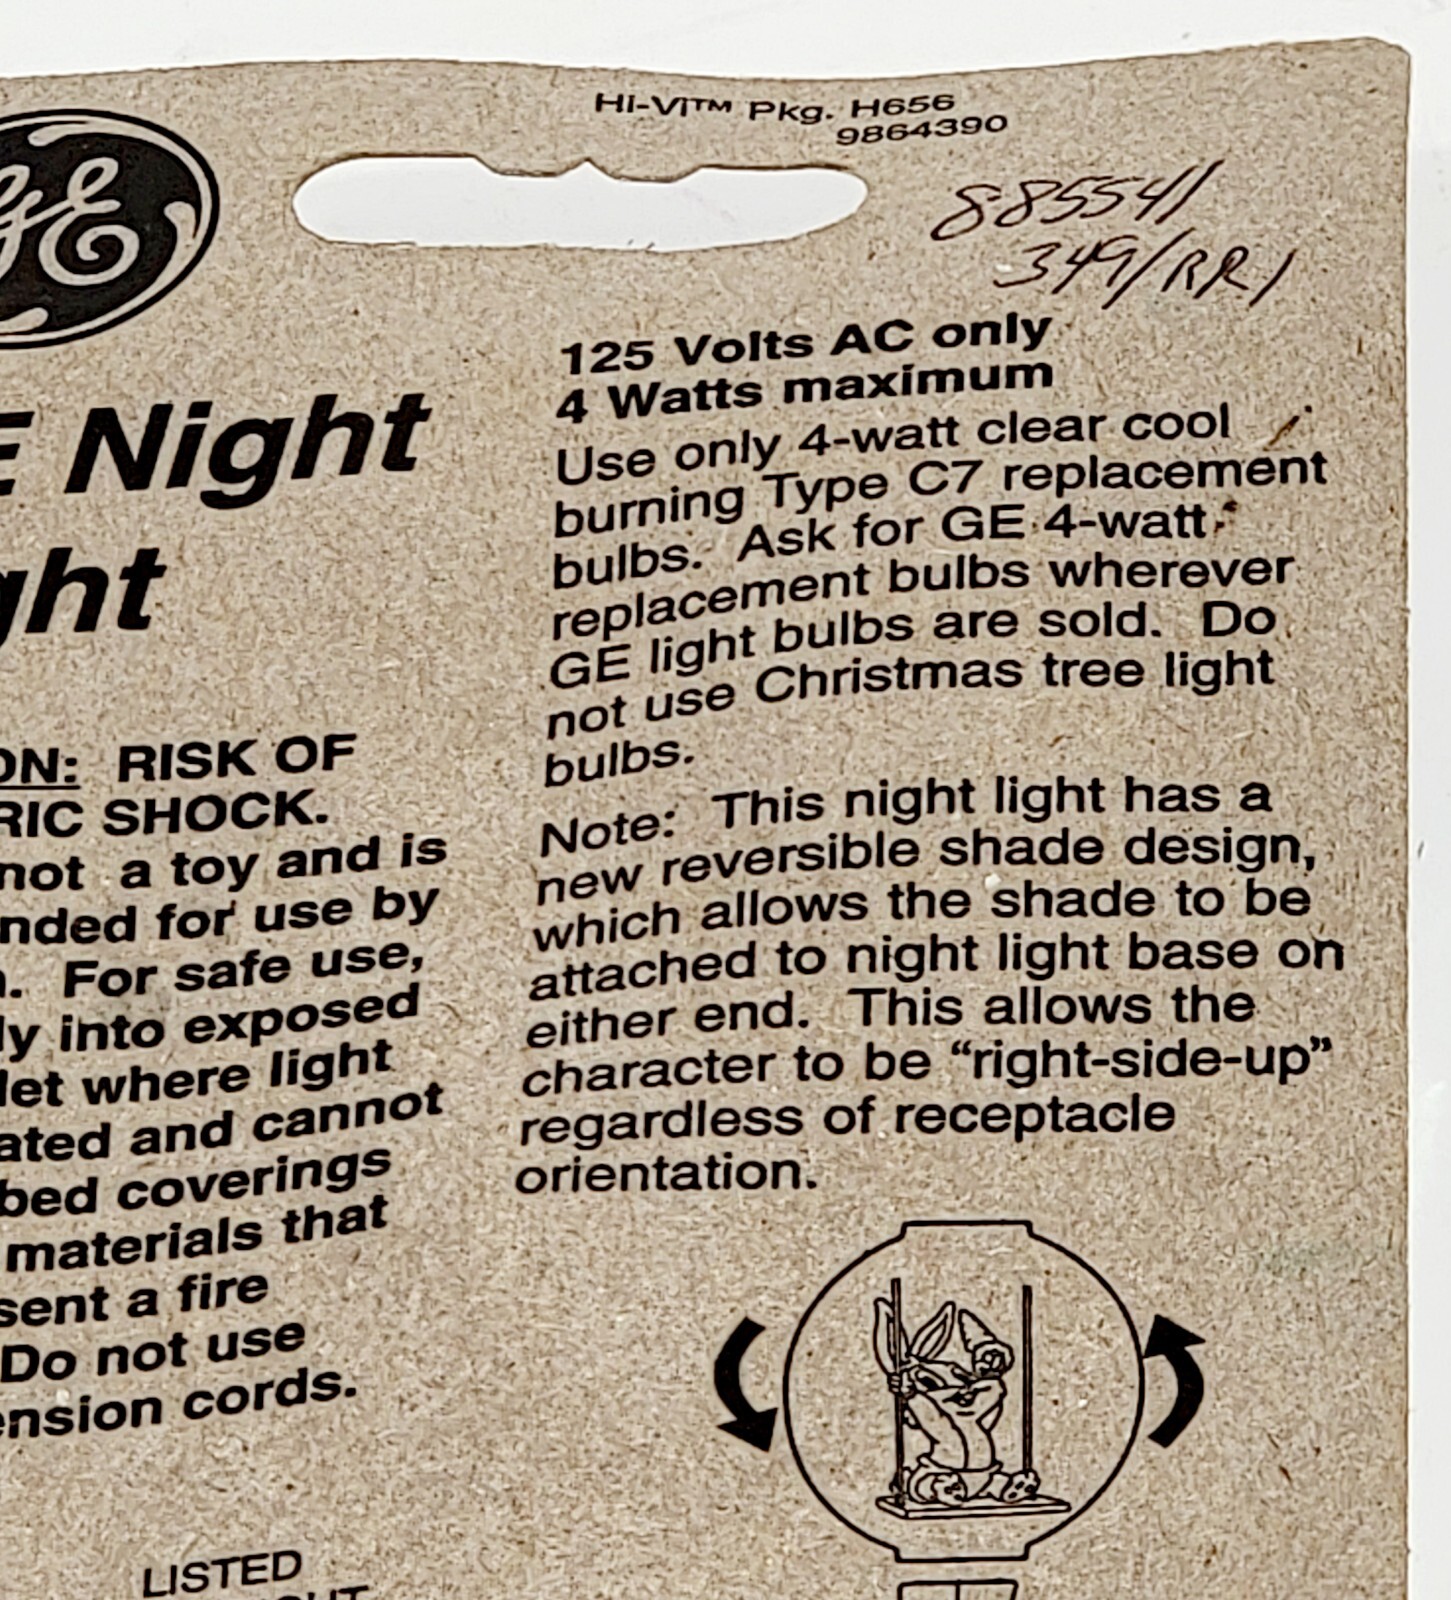 Hi-Vi™ Pkg. H656
9864390
GE
885541/
349/RR1
Night
ght
ON: RISK OF
RIC SHOCK.
not a toy and is
nded for use by
n. For safe use,
ly into exposed
let where light
ated and cannot
bed coverings
materials that
sent a fire
Do not use
ension cords.
LISTED
125 Volts AC only
4 Watts maximum
Use only 4-watt clear cool
burning Type C7 replacement
bulbs. Ask for GE 4-watt
replacement bulbs wherever
GE light bulbs are sold. Do
not use Christmas tree light
bulbs.
Note: This night light has a
new reversible shade design,
which allows the shade to be
attached to night light base on
either end. This allows the
character to be “right-side-up”
regardless of receptacle
orientation.